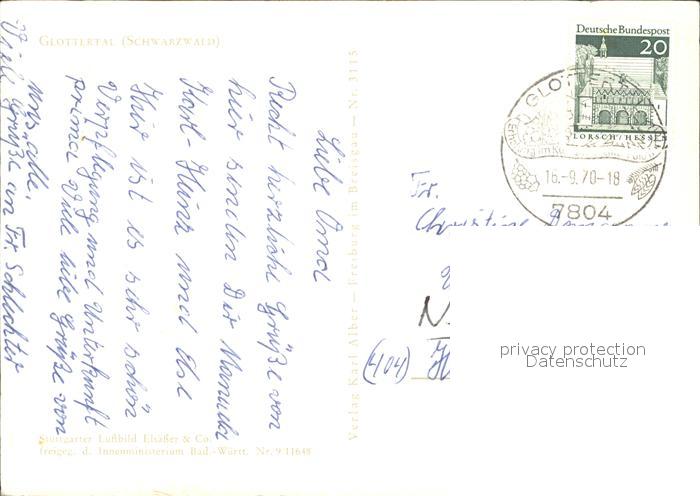 GLOTTERTAL (SCHWARZWALD)
Liebe Oma
Recht herzliche Grüße von
hier senden Dir Manuela
Karl-Heinz und Else
Hier ist es sehr schön
Verpflegung und Unterkunft
prima Viele liebe Grüße von
uns alle.
Viele Grüße an Fr. Schlechter
Stuttgarter Luftbild Elsäßer & Co.
freigeg. d. Innenministerium Bad.-Württ. Nr. 9 11648
Verlag Karl Alber — Freiburg im Breisgau — Nr. 3115
Deutsche Bundespost
20
LORSCH/HESSEN
GLOTTERTAL
16.-9.70-18
7804
Fr.
Christine
N.
(404) H
privacy protection
Datenschutz